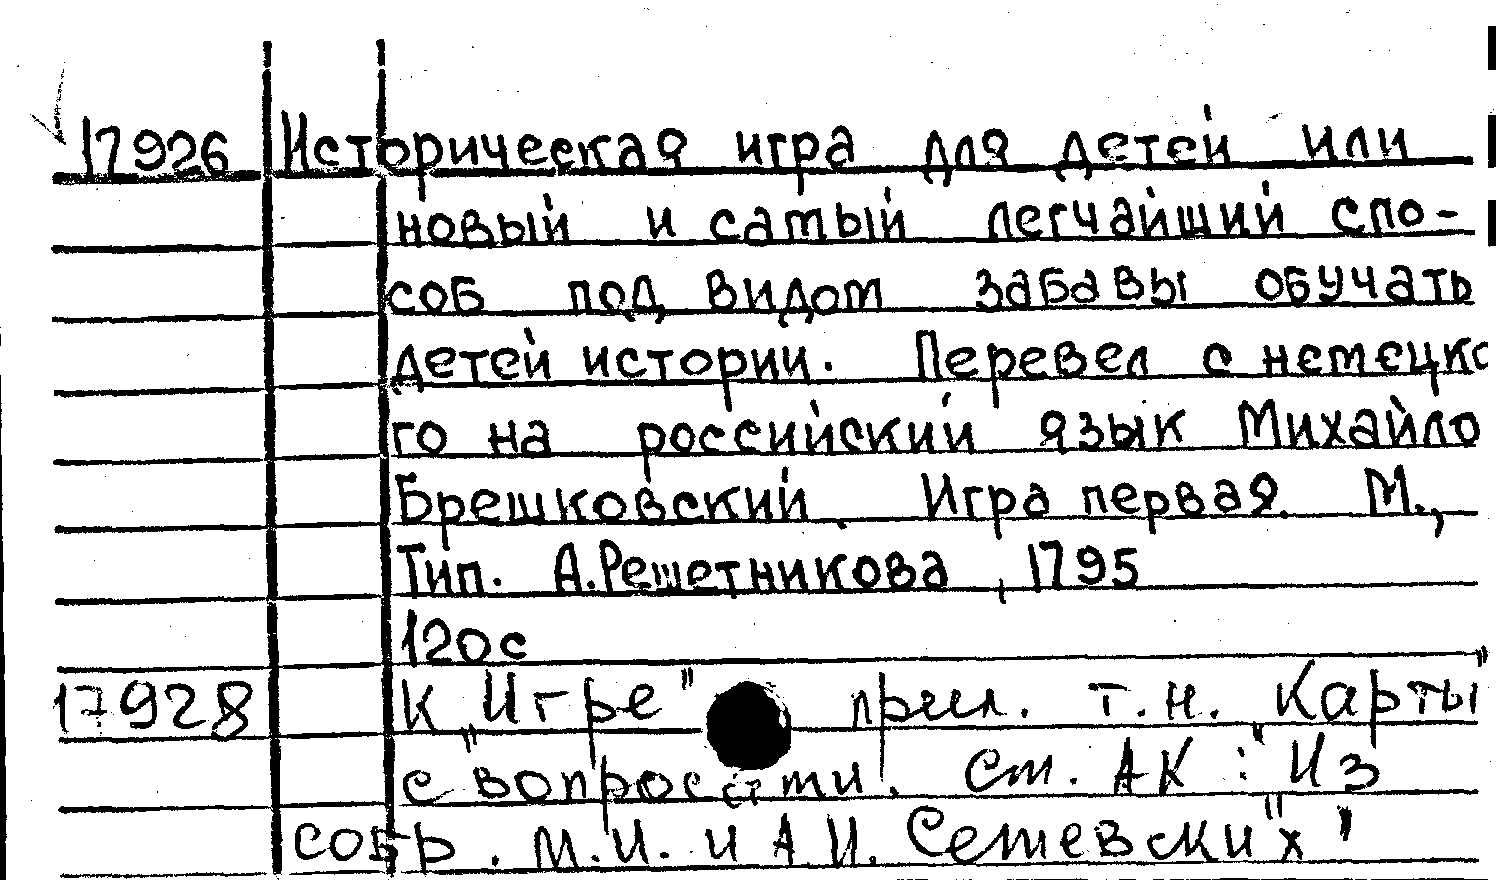 17926 Историческая игра для детей или
новый и самый легчайший спо-
соб под видом забавы обучать
детей истории. Перевел с немецко
го на российский язык Михайло
Брешковский. Игра первая. М.,
Тип. А.Решетникова, 1795
120с
17928 К „Игре" прил. т.н. Карты"
с „вопросами. Ст. АК: "Из
собр. М.И. и А.И. Сетевских"